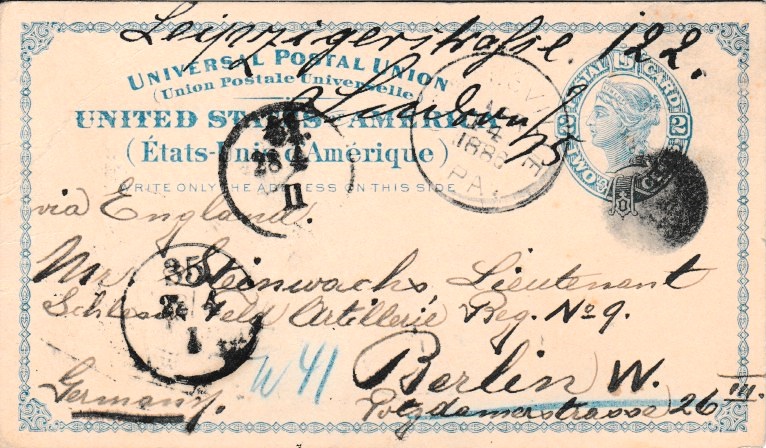 Leipzigerstraße 122.
UNIVERSAL POSTAL UNION
(Union Postale Universelle)
UNITED STATES AMERICA
(États-Unis d'Amérique)
WRITE ONLY THE ADDRESS ON THIS SIDE
POSTAL CARD
2
TWO
1886
PA.
11
via England.
Mr. Steinwachs, Lieutenant
Feld Artillerie Reg. No 9.
35
1
W 41
Berlin W.
Germany.
Potzdamerstrasse 26 III.